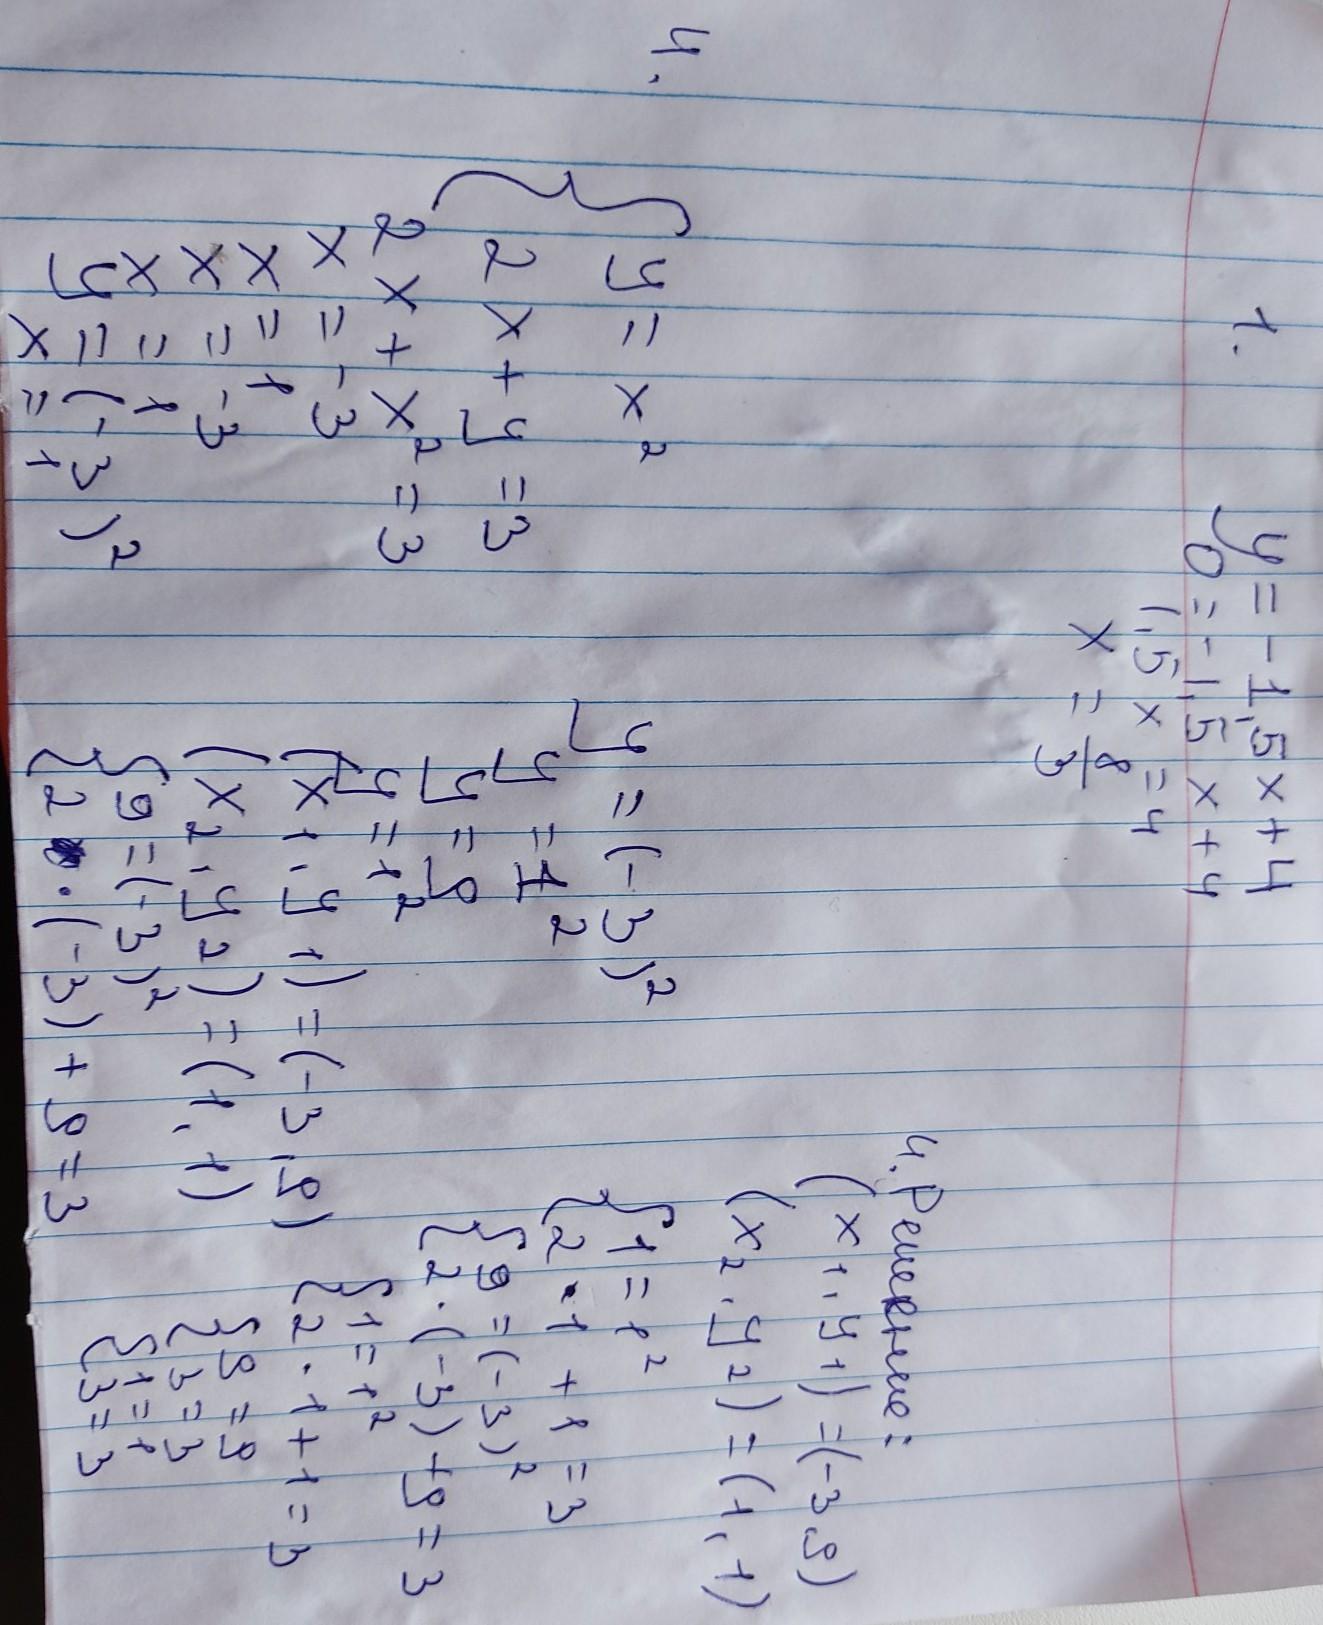 1.
y = -1,5x+4
0 = -1,5x+4
1,5x = 4
x = 8/3
4.
{ y = x²
2x + y = 3
2x + x² = 3
x = -3
x = 1
x = -3
x = 1
y = (-3)²
x = 1
y = (-3)²
y = 1²
y = 9
y = 1²
(x1, y1) = (-3, 9)
(x2, y2) = (1, 1)
{ 9 = (-3)²
2 · (-3) + 9 = 3
4. Решение:
(x1, y1) = (-3, 9)
(x2, y2) = (1, 1)
{ 1 = 1²
2 · 1 + 1 = 3
{ 9 = (-3)²
2 · (-3) + 9 = 3
{ 1 = 1²
2 · 1 + 1 = 3
{ 9 = 9
3 = 3
{ 1 = 1
3 = 3